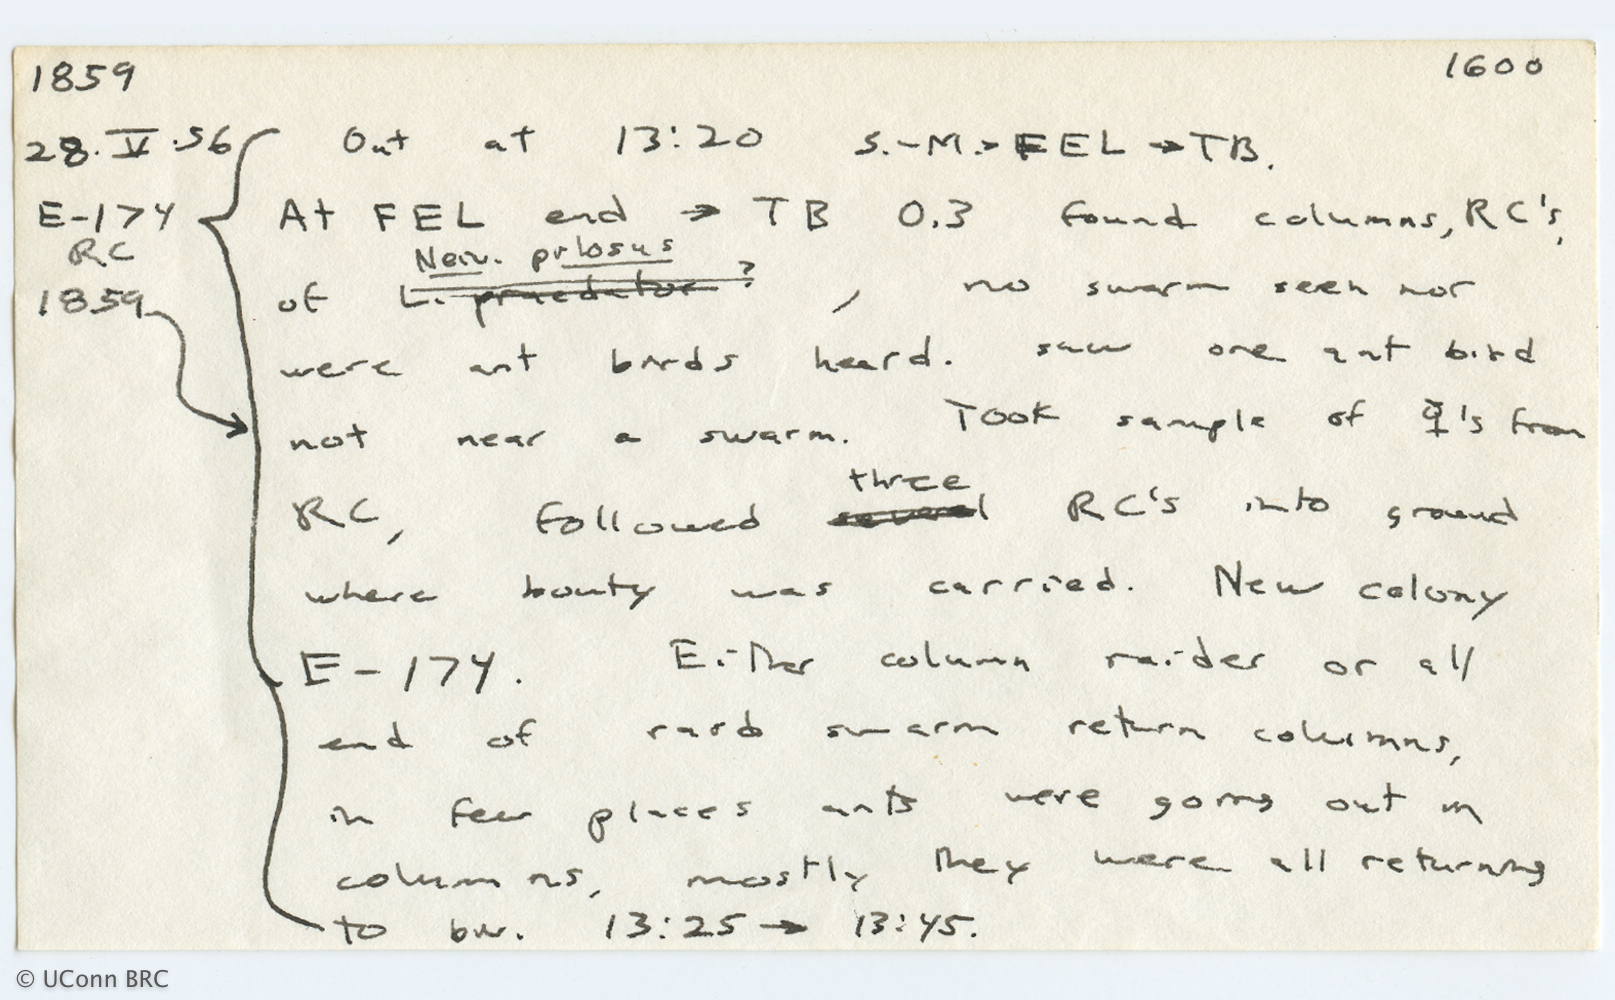 1859
1600
28.V.56
Out at 13:20 S.-M.→FEL→TB.
E-174
At FEL end → TB 0.3 found columns, RC's,
RC
Neiv. pilosus
1859
of L. praedator ? , no swarm seen nor
were ant birds heard. saw one ant bird
not near a swarm. Took sample of ☿'s from
three
RC, followed several RC's into ground
where bouty was carried. New colony
E-174. Either column raider or all
end of raid swarm return columns,
in few places ants were going out in
columns, mostly they were all returning
to biv. 13:25 → 13:45.
© UConn BRC